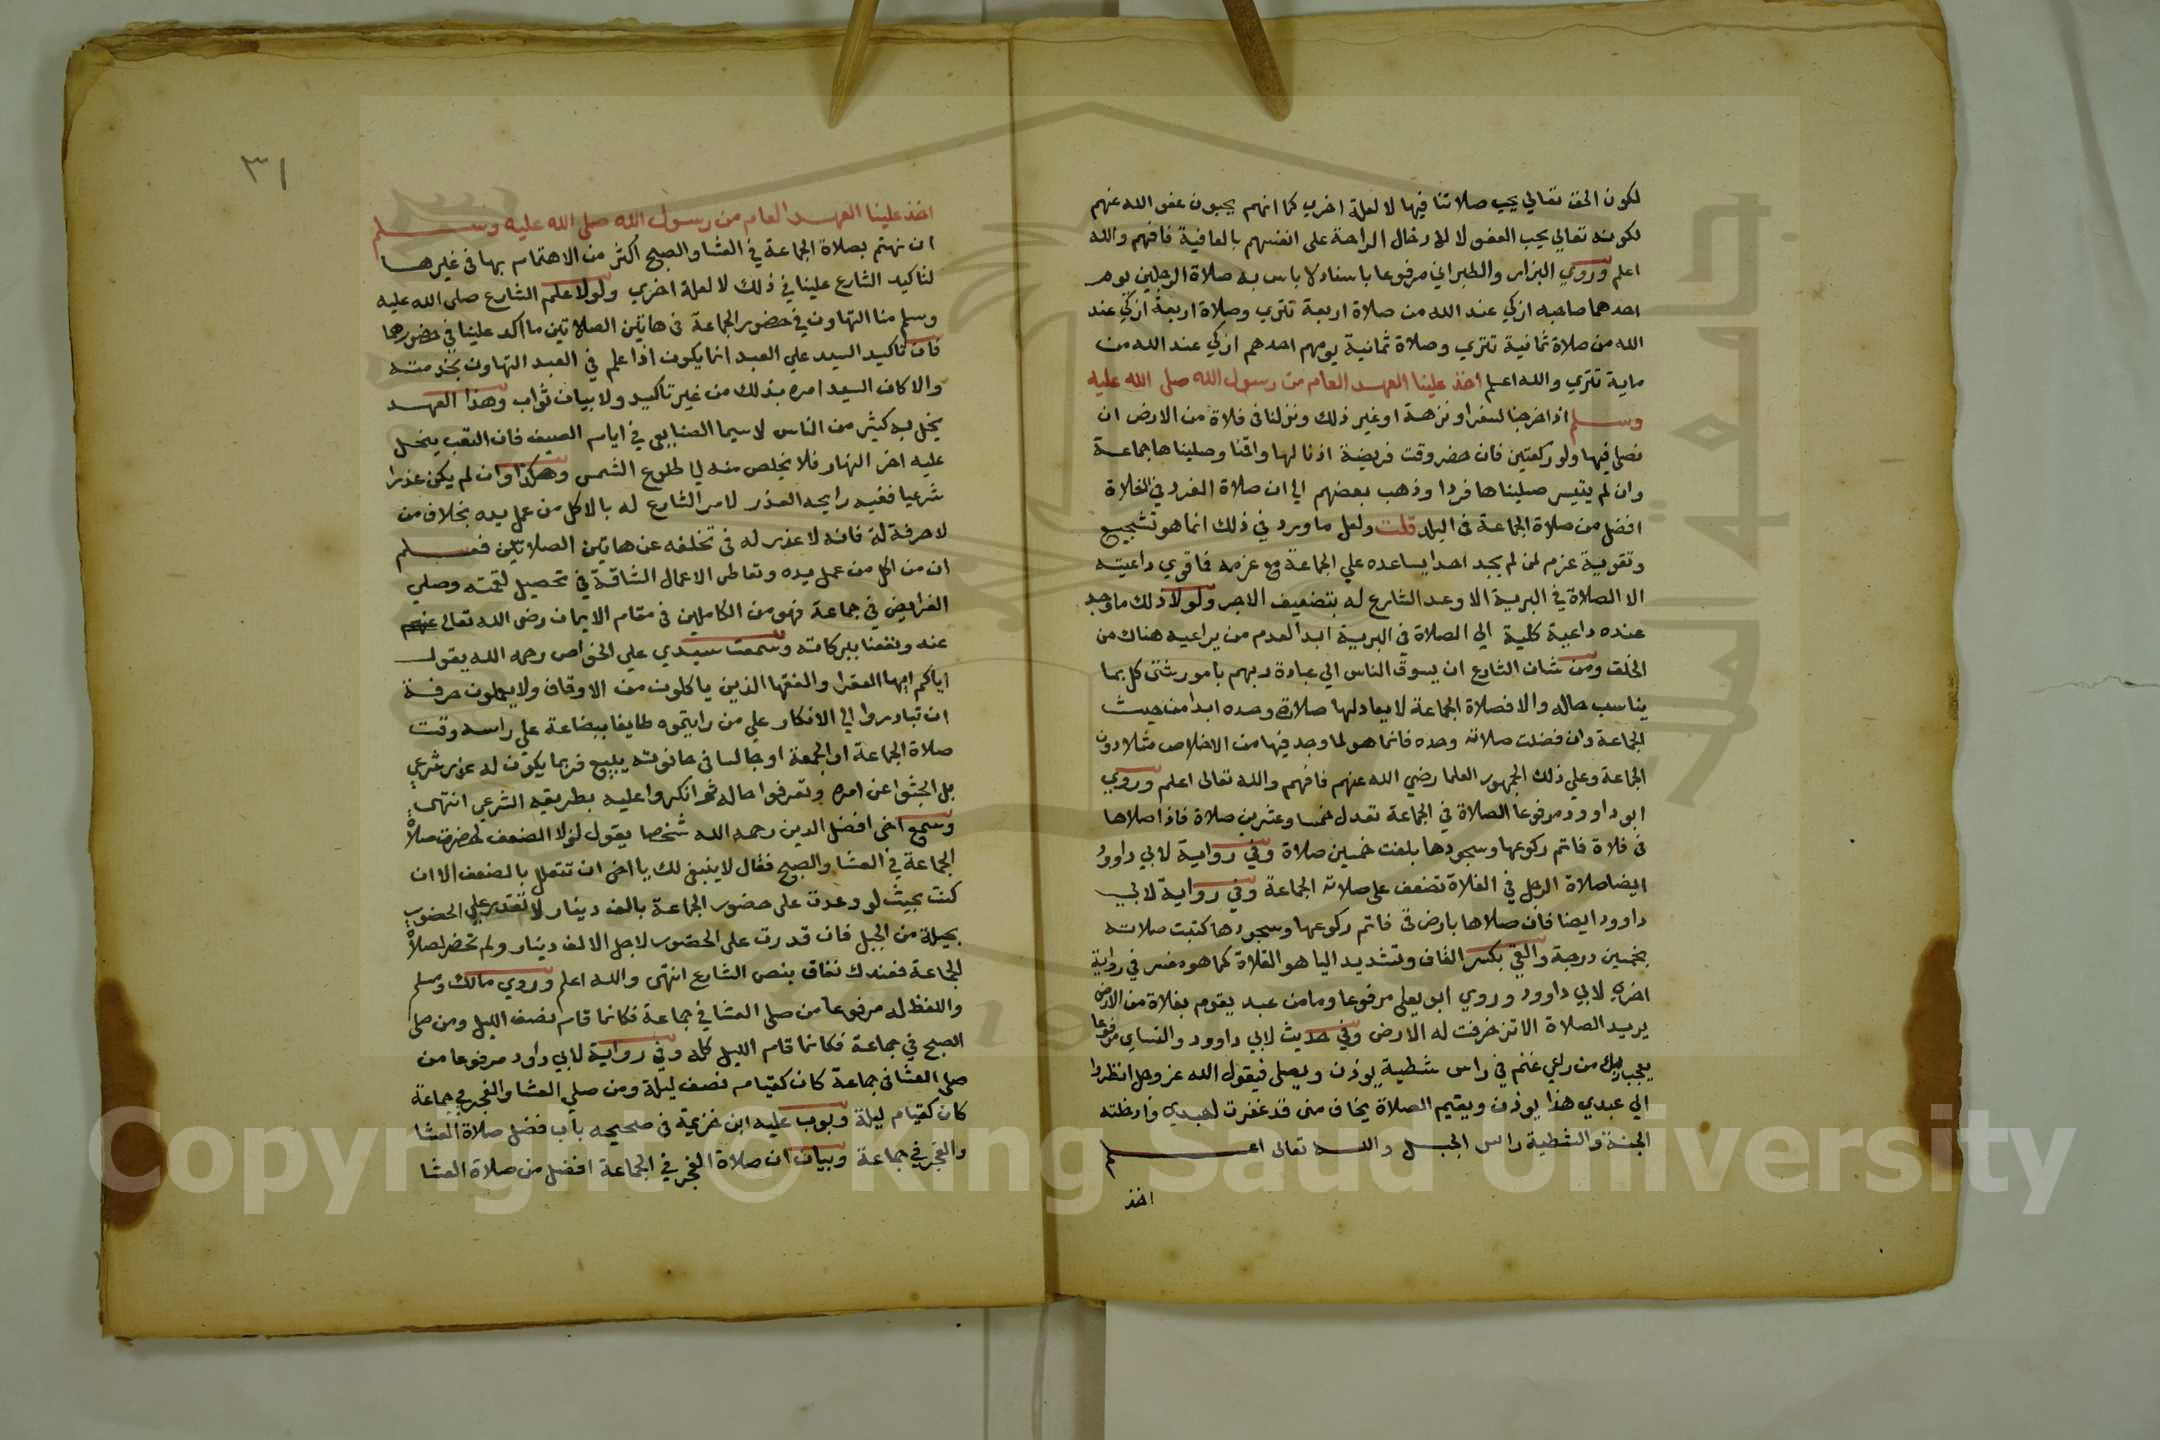 لكون الحق تعالي يحب صلاتنا فيها لا لعلة اخري كما انهم يحبون عفو الله عنهم
لكونه تعالي يحب العفو لا لادخال الراحة على انفسهم بالعافية فافهم والله
اعلم وروي البزار والطبراني مرفوعا باسناد لا باس به صلاة الرجلين يوم
احدهما صاحبه ازكي عند الله من صلاة اربعة تتري وصلاة اربعة ازكي عند
الله من صلاة ثمانية تتري وصلاة ثمانية يومهم احدهم ازكي عند الله من
ماية تتري والله اعلم اخذ علينا العهد العام من رسول الله صلى الله عليه
وسلم اذا خرجنا لسفر او نزهة او غير ذلك ونزلنا في فلاة من الارض ان
نصلي فيها ولو ركعتين فان حضر وقت فريضة اذنا لها واقمنا وصليناها جماعة
وان لم يتيسر صليناها فردا وذهب بعضهم الي ان صلاة الفرد في الفلاة
افضل من صلاة الجماعة في البلد قلت ولعل ما ورد في ذلك انما هو تشجيع
وتقوية عزم لمن لم يجد احدا يساعده علي الجماعة مع عزمه فاقوي داعيته
الا الصلاة في البرية الا وعد الشارع له بتضعيف الاجر ولولا ذلك ما وجد
عنده داعية كلية الي الصلاة في البرية ابدا لعدم من يراعيه هناك من
الخلق ومن شان الشارع ان يسوق الناس الي عبادة ربهم بامور شتي كل بما
يناسب حاله والا فصلاة الجماعة لا يعادلها صلاة وحده ابدا من حيث
الجماعة وان فضلت صلاته وحده فانما هو لما وجد فيها من الاخلاص مثلا دون
الجماعة وعلي ذلك الجمهور العلما رضي الله عنهم فافهم والله تعالى اعلم وروي
ابو داوود مرفوعا الصلاة في الجماعة تعدل خمسا وعشرين صلاة فاذا صلاها
في فلاة فاتم ركوعها وسجودها بلغت خمسين صلاة وفي رواية لابي داوود
ايضا صلاة الرجل في الفلاة تضعف على صلاته الجماعة وفي رواية لابي
داوود ايضا فان صلاها بارض قي فاتم ركوعها وسجودها كتبت صلاته
بخمسين درجة والقي بكسر القاف وتشديد اليا هو الفلاة كما هو مفسر في رواية
اخري لابي داوود وروي ابو يعلى مرفوعا وما من عبد يقوم بفلاة من الارض
يريد الصلاة الا تزخرفت له الارض وفي حديث لابي داوود والنساي مرفوعا
يعجب ربك من راعي غنم في راس شظية يوذن ويصلى فيقول الله عز وجل انظروا
الي عبدي هذا يوذن ويقيم الصلاة يخاف مني قد غفرت لعبدي وادخلته
الجنة والشظية راس الجبل والله تعالى اعلم
اخذ
٣١
اخذ علينا العهد العام من رسول الله صلى الله عليه وسلم
ان نهتم بصلاة الجماعة في العشا والصبح اكثر من الاهتمام بها في غيرها
لتاكيد الشارع علينا في ذلك لا لعلة اخري ولولا علم الشارع صلى الله عليه
وسلم منا التهاون في حضور الجماعة في هاتين الصلاتين ما اكد علينا في حضورهما
فان تاكيد السيد علي العبد انما يكون اذا علم في العبد التهاون بخدمته
والا كان السيد امره بذلك من غير تاكيد ولا بيان ثواب وهذا العهد
يخل به كثير من الناس لاسيما الصنايعي في ايام الصيف فان التعب ينحل
عليه اخر النهار فلا يخلص منه الي طلوع الشمس وهكذا وان لم يكن عذرا
شرعيا ففيه رايحة العذر لامر الشارع له بالاكل من عمل يده بخلاف من
لا حرفة له فانه لا عذر له في تخلفه عن هاتين الصلاتين فعلم
ان من اكل من عمل يده وتعاطى الاعمال الشاقة في تحصيل لقمته وصلي
الفرايض في جماعة فهو من الكاملين في مقام الايمان رضى الله تعالى عنهم
عنه ونفعنا ببركاته وسمعت سيدي علي الخواص رحمه الله يقول
اياكم ايها الفقرا والفقها الذين ياكلون من الاوقاف ولا يعملون حرفة
ان تبادروا الي الانكار علي من رايتموه طايفا ببضاعة علي راسه وقت
صلاة الجماعة او الجمعة او جالسا في حانوته يبيع فربما يكون له عذر شرعي
بل ابحثوا عن امره وتعرفوا حاله ثم انكروا عليه بطريقه الشرعي انتهى
وسمع اخى افضل الدين رحمه الله شخصا يقول لولا الضعف لحضرت صلاة
الجماعة في العشا والصبح فقال لا ينبغي لك يا اخى ان تتعلل بالضعف الا ان
كنت بحيث لو وعدت على حضور الجماعة بالف دينار لا تقدر علي الحضور
بحيلة من الحيل فان قدرت على الحضور لاجل الالف دينار ولم تحضر لصلاة
الجماعة فعندك نفاق بنص الشارع انتهى والله اعلم وروي مالك ومسلم
واللفظ له مرفوعا من صلى العشا في جماعة فكانما قام نصف الليل ومن صلى
الصبح في جماعة فكانما قام الليل كله وفي رواية لابي داود مرفوعا من
صلى العشا في جماعة كان كقيام نصف ليلة ومن صلي العشا والفجر في جماعة
كان كقيام ليلة وبوب عليه ابن خزيمة في صحيحه باب فضل صلاة العشا
والفجر في جماعة وبيان ان صلاة الفجر في الجماعة افضل من صلاة العشا
Copyright © King Saud University